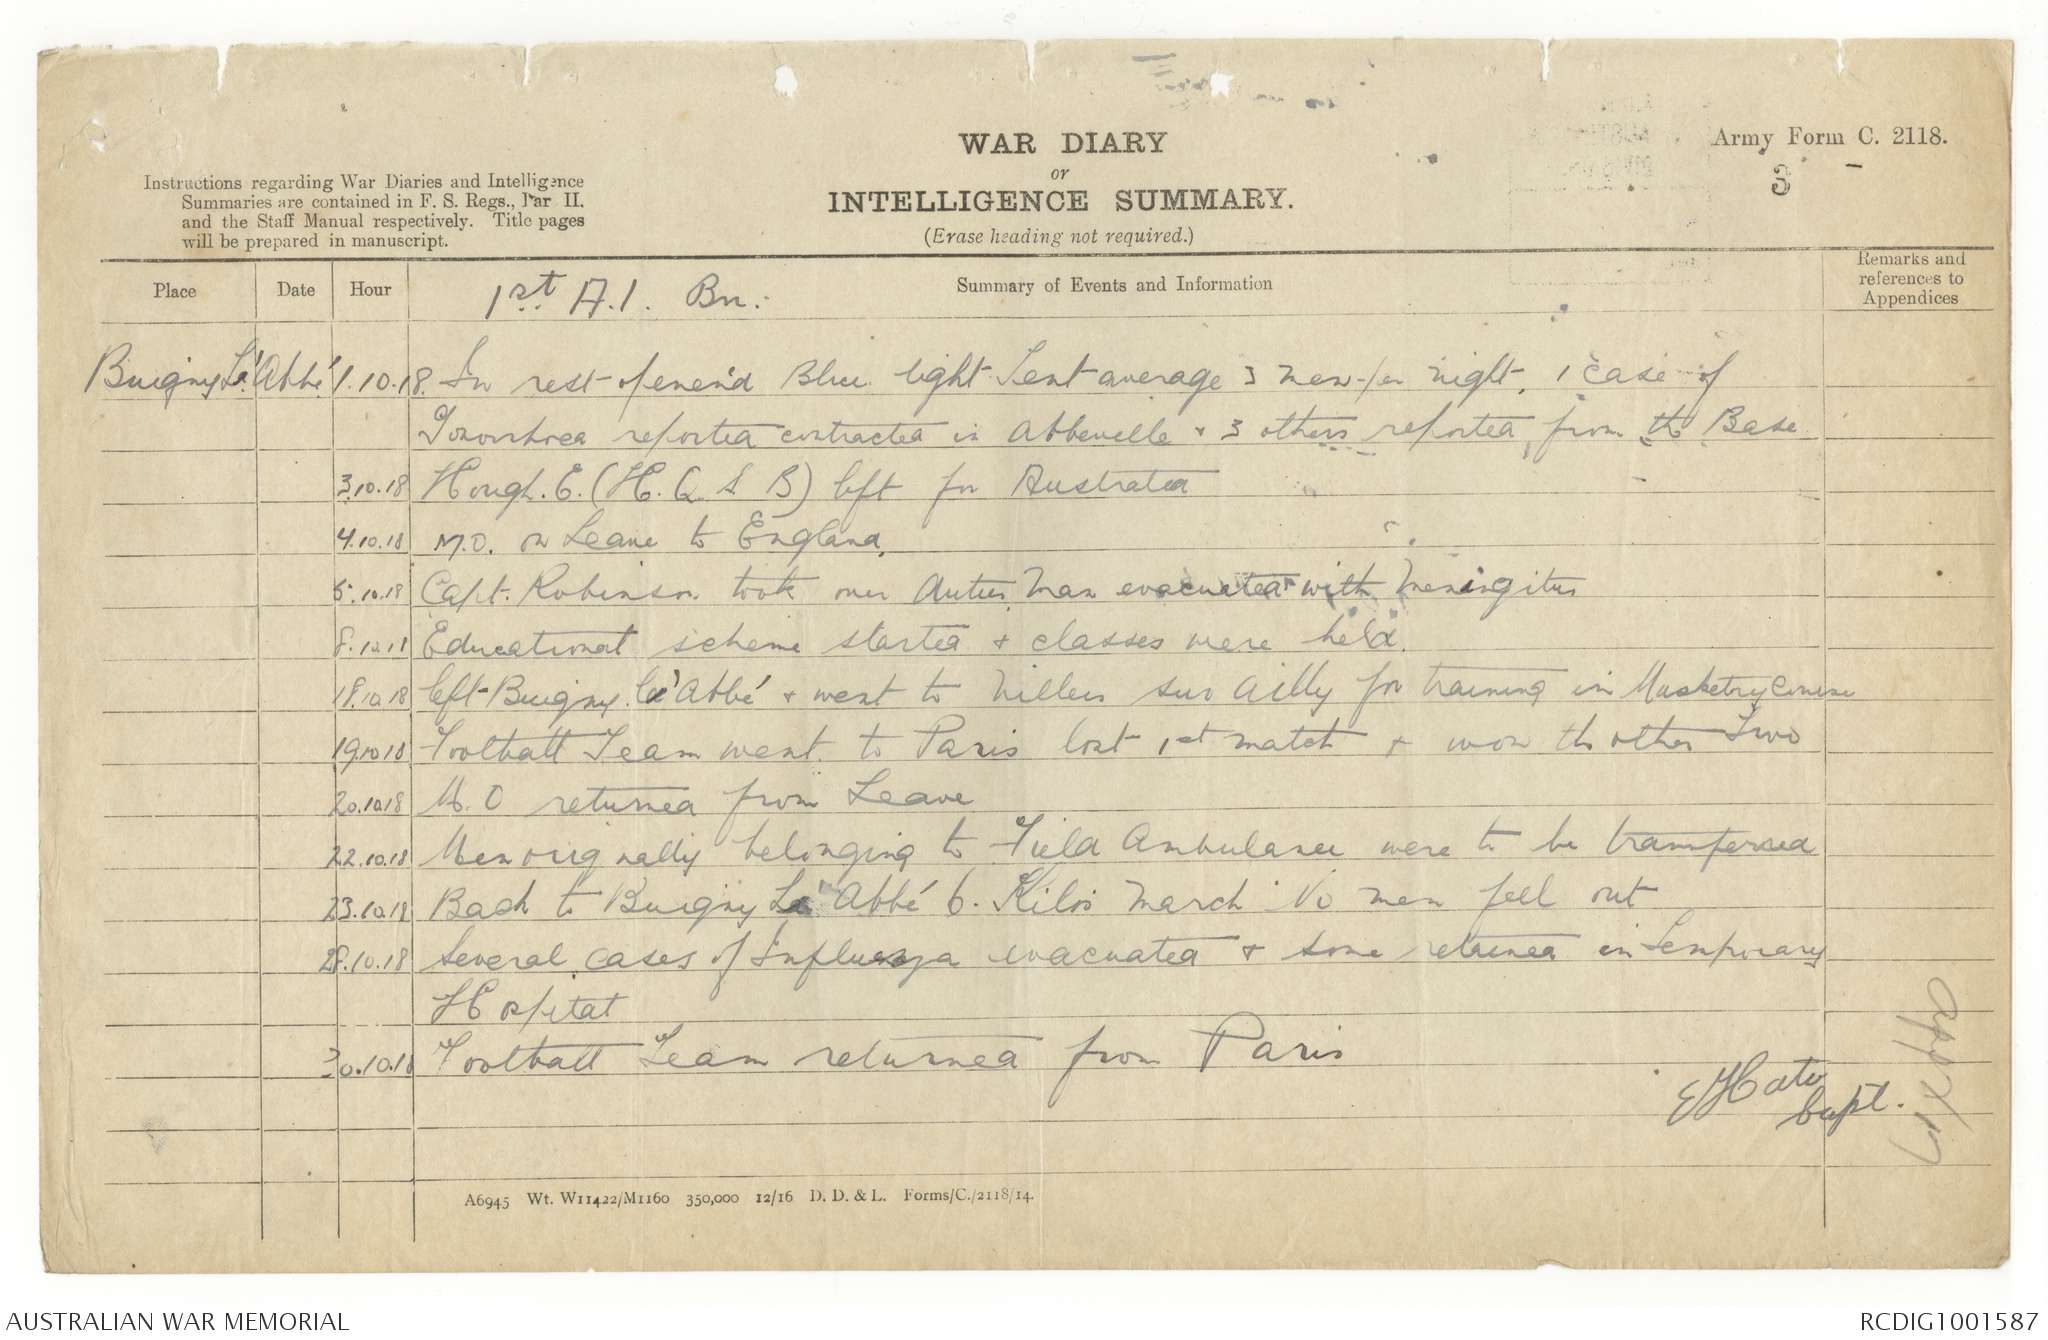 WAR DIARY
or
INTELLIGENCE SUMMARY.
(Erase heading not required.)
Army Form C. 2118.
3
Instructions regarding War Diaries and Intelligence
Summaries are contained in F. S. Regs., Par II.
and the Staff Manual respectively. Title pages
will be prepared in manuscript.
Place Date Hour 1st A.I. Bn: Summary of Events and Information Remarks and
references to
Appendices
Buigny La' Abbé 1.10.18 In rest opened Blue light Tent average 3 men per night, 1 case of
Gonorrhoea reported contracted in Abbeville & 3 others reported from the Base
3.10.18 Hough. E. left for Australia
4.10.18 M.O. on Leave to England
5.10.18 Capt. Robinson took over duties Man evacuated with Meningitus
8.10.18 Educational scheme started & classes were held.
18.10.18 left Buigny La' Abbé & went to Villers sur Ailly for training in Musketry Course
19.10.18 Football Team went to Paris lost 1st match & won the other Two
20.10.18 M.O returned from Leave
22.10.18 Men orig nally belonging to Field Ambulance were to be transferred
23.10.18 Back to Buigny La' Abbé 6. Kilos march No men fell out
28.10.18 Several cases of Influenza evacuated & some retained in Temporary
Hospital
30.10.18 Football Team returned from Paris
Capt.
A6945 Wt. W11422/M1160 350,000 12/16 D. D. & L. Forms/C./2118/14.
AUSTRALIAN WAR MEMORIAL
RCDIG1001587